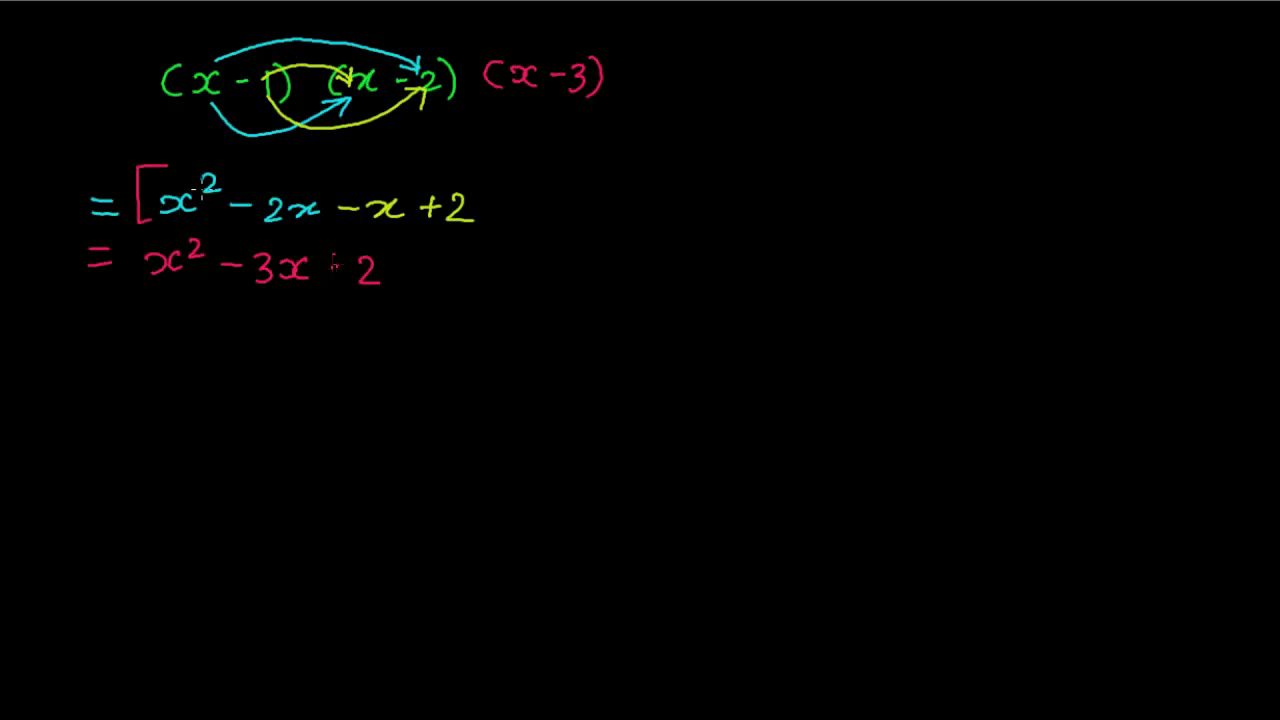 (x - 1) (x - 2) (x - 3)
= [x² - 2x - x + 2
= x² - 3x + 2